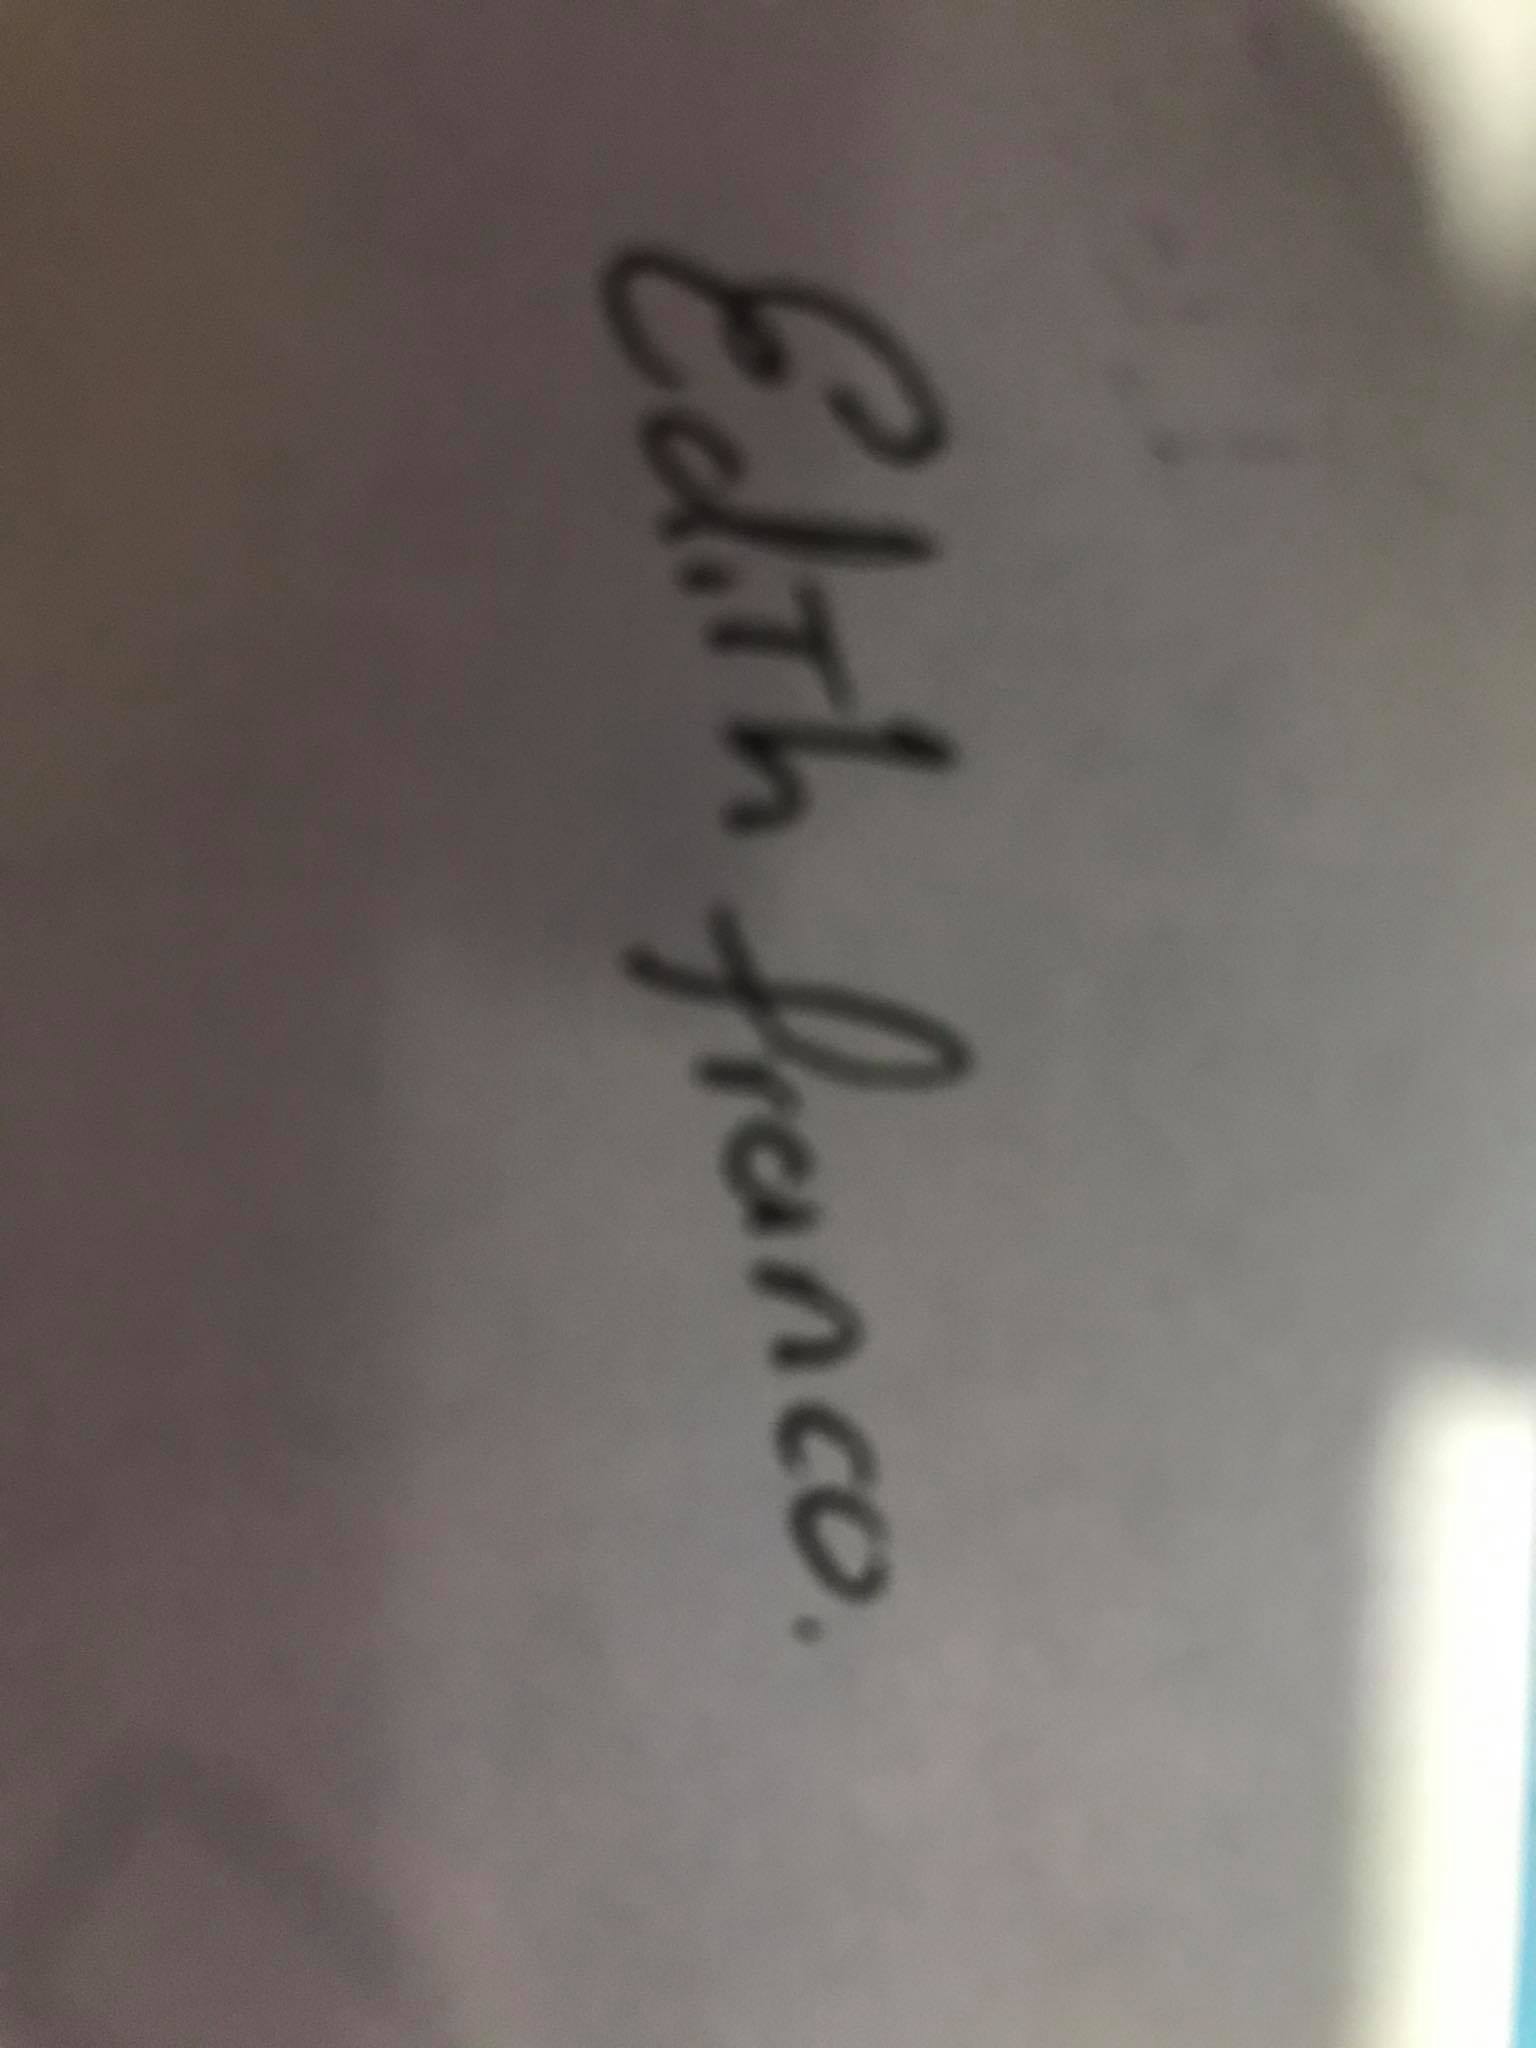 Edith franco.